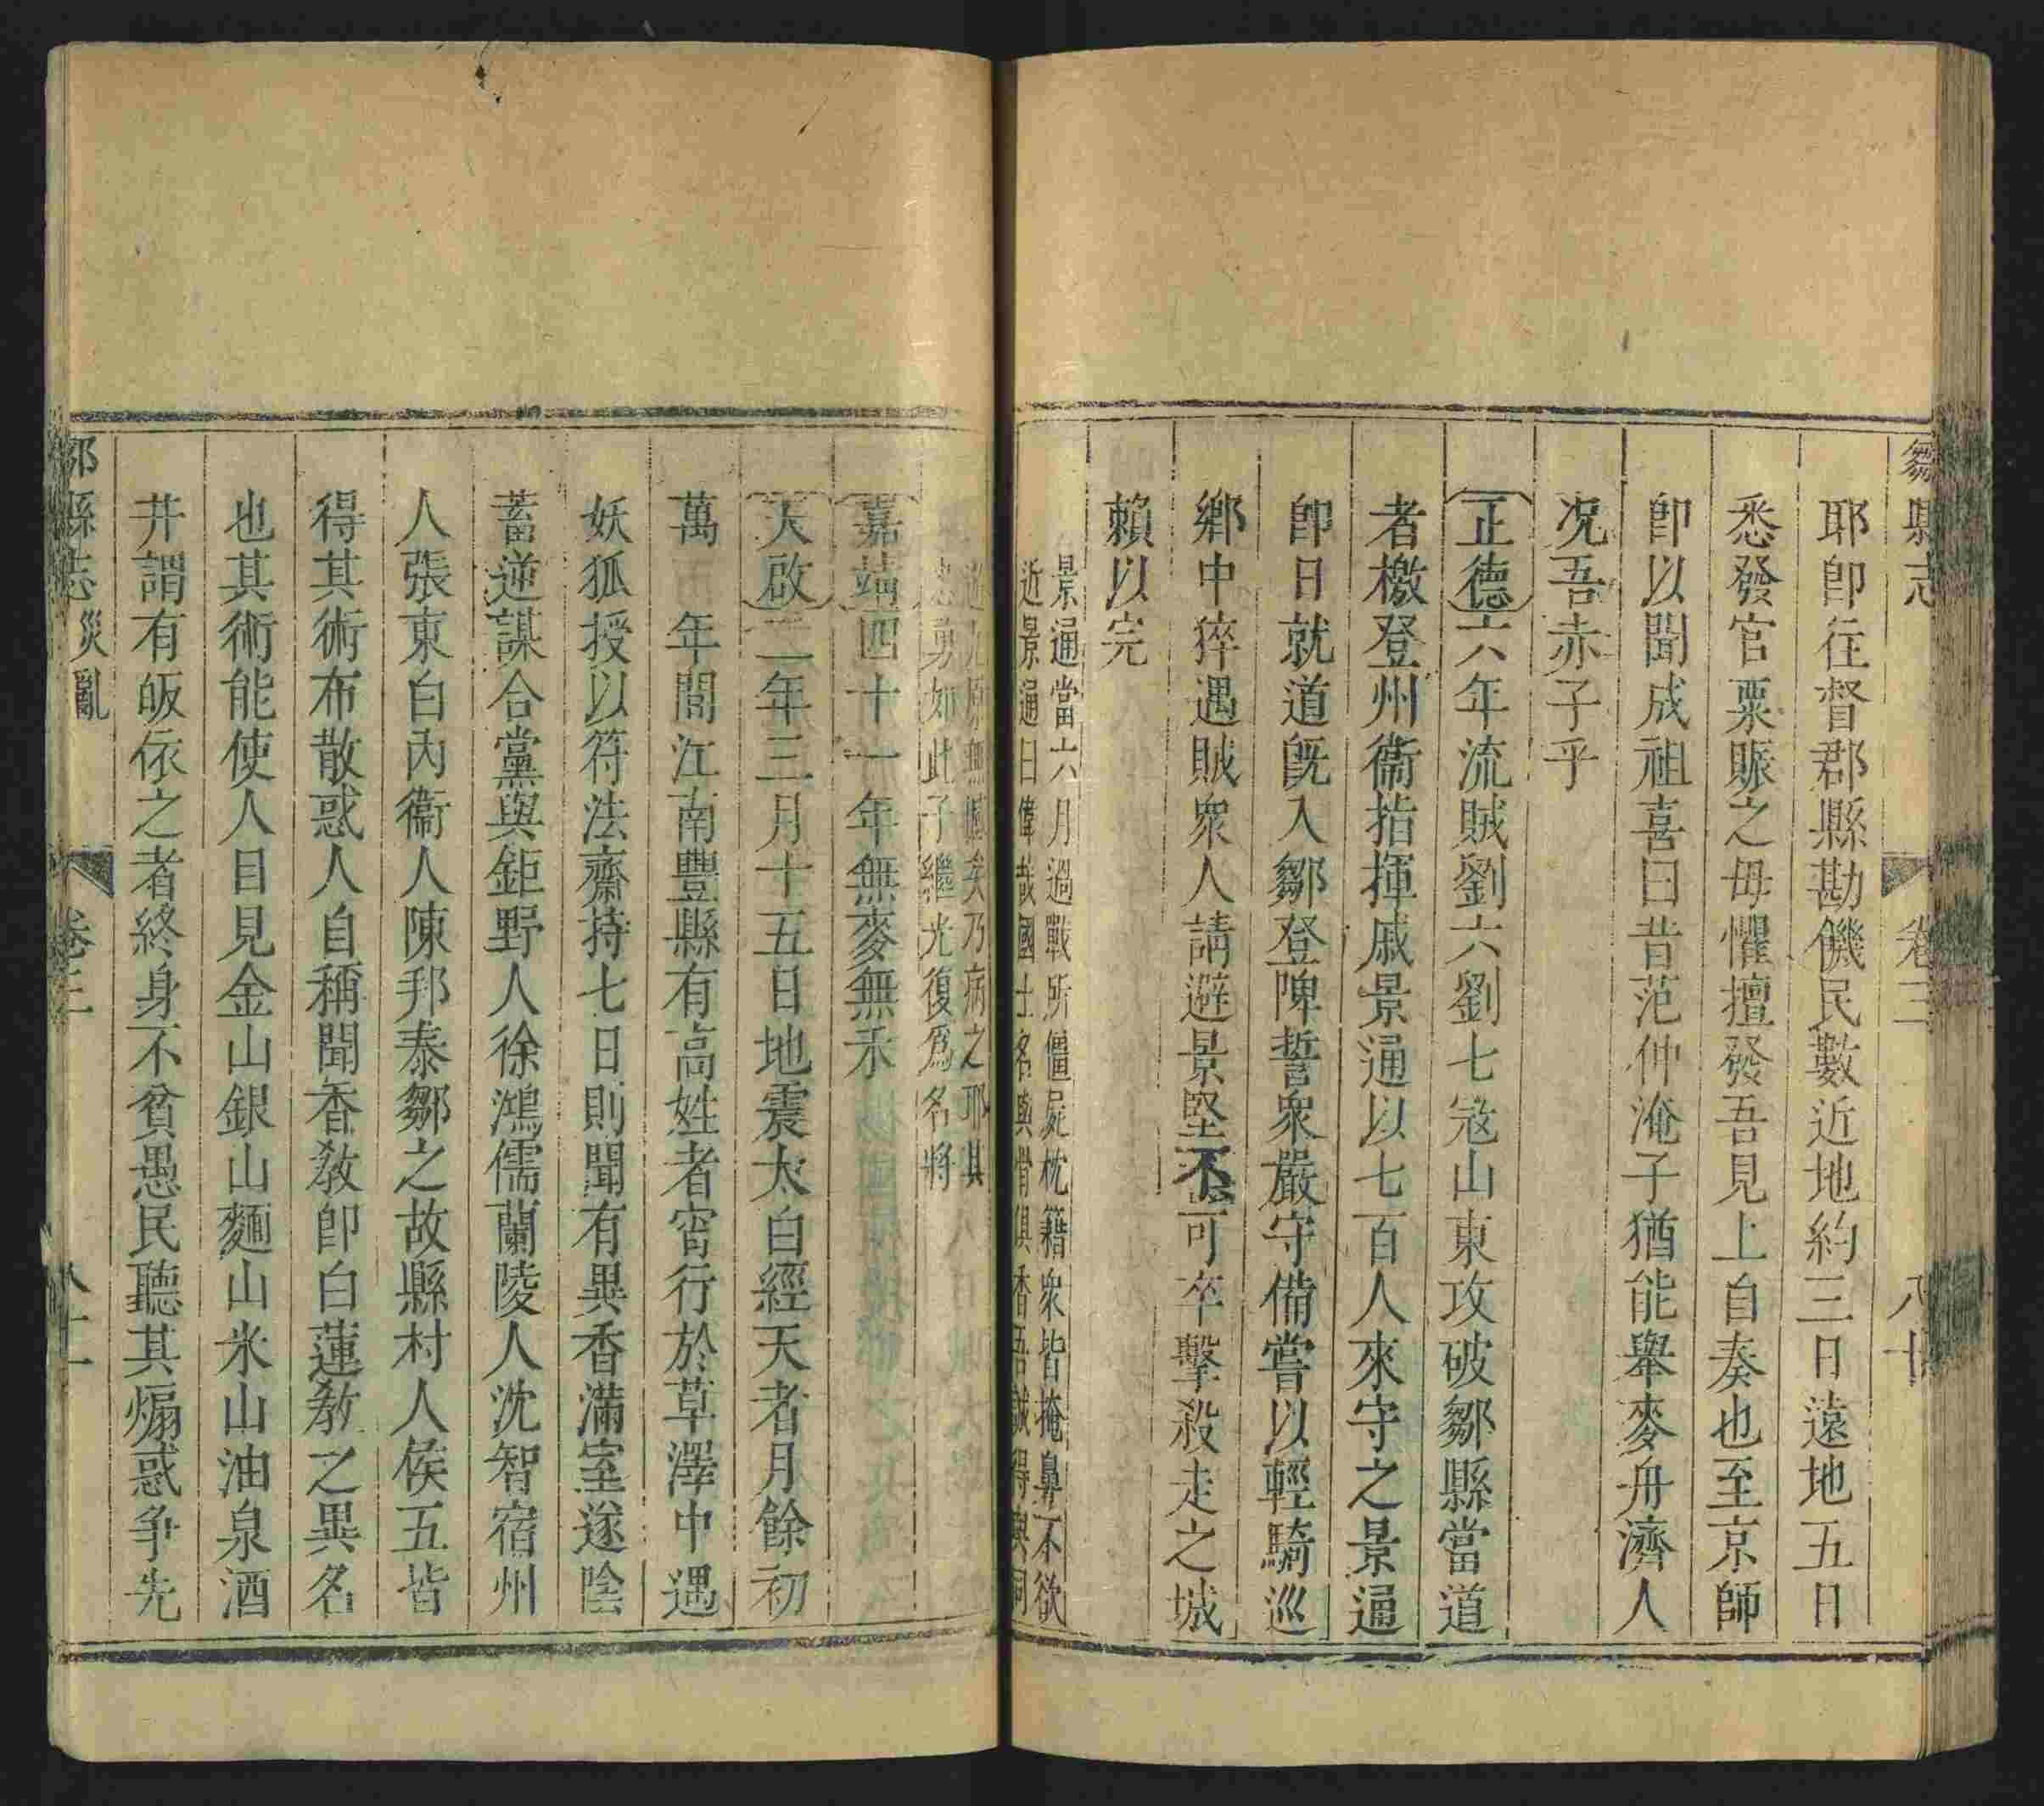 縣志 卷三 八十
耶卽往督郡縣勘饑民數近地約三日遠地五日
悉發官粟賑之毋懼擅發吾見上自奏也至京師
卽以聞成祖喜曰昔范仲淹子猶能舉麥舟濟人
况吾赤子乎
正德六年流賊劉六劉七宼山東攻破鄒縣當道
者檄登州衞指揮戚景通以七百人來守之景通
卽日就道旣入鄒登陴誓衆嚴守備嘗以輕騎巡
鄉中猝遇賊衆人請避景堅不可卒擊殺走之城
賴以完
景通當六月過戰所僵屍枕籍衆皆掩鼻不欲
近景通曰偉哉國士名與骨俱香吾誠得與同
無憾矣乃病之耶其
忠勇如此子繼光復爲名將
嘉靖四十一年無麥無禾
天啟二年三月十五日地震太白經天者月餘初
萬 年間江南豐縣有高姓者宵行於草澤中遇
妖狐授以符法齋持七日則聞有異香滿室遂陰
蓄逆謀合黨與鉅野人徐鴻儒蘭陵人沈智宿州
人張東白內衞人陳邦泰鄒之故縣村人侯五皆
得其術布散惑人自稱聞香敎卽白蓮敎之異名
也其術能使人目見金山銀山麵山米山油泉酒
井謂有皈依之者終身不貧愚民聽其煽惑爭先
鄒縣志 災亂 卷三 八十一